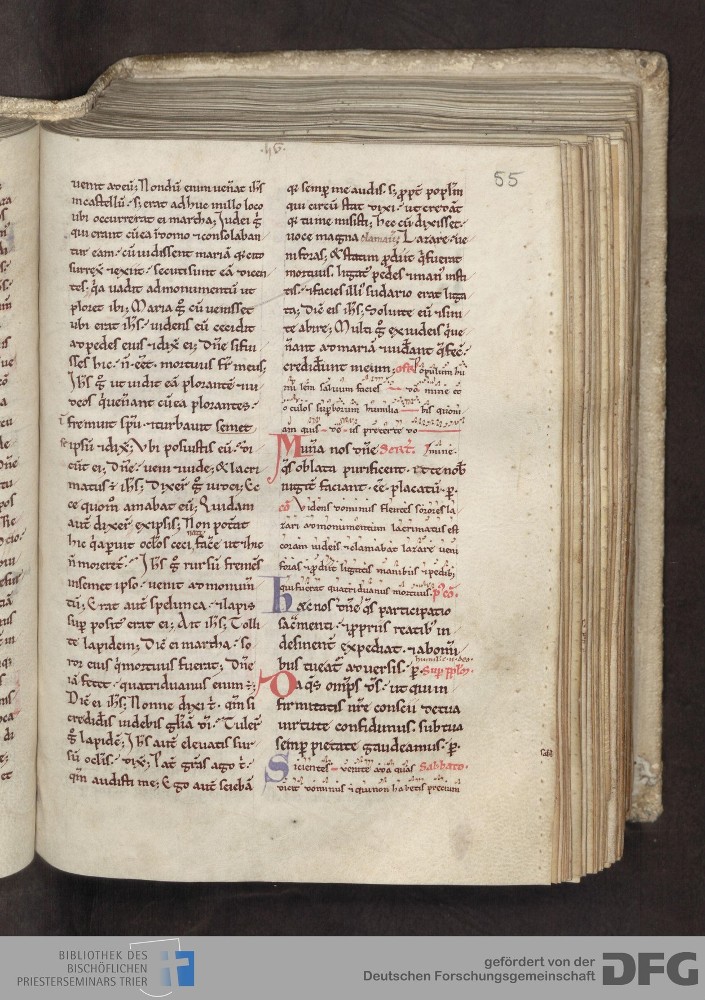 ·46·
55
uenit ad eū; Nondū enim uenẹat ih̄s
in castellū · s; erat adhuc in illo loco
ubi occurrerat ei martha; Iudei g̊
qui erant cū ea ī domo ⁊ consolaban
tur eam · cū uidissent mariā q̄ cito
surrex̄ ⁊ exiit · secuti sunt eā dicen
tes; q̄a uadit ad monumentū ut
ploret ibi; Maria g̊ cū uenisset
ubi erat ih̄s · uidens eū cecidit
ad pedes eius ⁊ dix̄ ei; Dn̄e si fuis
ses hic · n̄ eēt mortuus fr̄ meus;
Ih̄s g̊ ut uidit eā plorantē ⁊ iu
deos q̇ uenerant cū ea plorantes ·
fremuit sp̄u · ⁊ turbauit semet
ipsū ⁊ dix̄; Vbi posuistis eū · Di
cūt ei; Dn̄e · ueni ⁊ uide; & lacri
matus ē ih̄s; Dixer̄ g̊ iudei; Ec
ce quom̄ amabat eū; Quidam
aut̄ dixer̄ ex ipsis; Non pot̄at
hic q̇ aperuit oculos ceci nati facere ut ⁊ hic
n̄ moreret̄ · Ih̄s g̊ rursū fremēs
in semet ipso · uenit ad monum̄
tū; Erat aut̄ spelunca · ⁊ lapis
sup̄ posit̄ erat ei; Ait ih̄s; Tolli
te lapidem; Dic̄ ei martha · so
ror eius q̇ mortuus fuerat; Dn̄e
iā fetet · quatriduanus enim ē;
Dic̄ ei ih̄s; Nonne dixi t̄ · qm̄ si
credidis uidebis gl̄iā di · Tuler̄
g̊ lapidē; Ih̄s aut̄ eleuatis sur
sū oclis · dix̄; Pat̄ gr̄as ago t̄ ·
qm̄ audisti me; Ego aut̄ sciebā
q̄ semp̄ me audis · s; ppt̄ popl̄m
qui circū stat dixi · ut credāt
q̄ tu me misisti; Hec cū dixisset ·
uoce magna clamauit; Lazare · ue
ni foras; & statim pdiit q̇ fuerat
mortuus · ligat̄ pedes ⁊ man̄ insti
tis · ⁊ facies illi sudario erat liga
ta; Dic̄ eis ih̄s; Soluite eū ⁊ sini
te abire; Multi g̊ ex iudeis q̇ ue
nerant ad mariā ⁊ uiderant q̄ fec̄ ·
crediderunt in eum; off. Populum hu
milem saluum facies — dn̄e et
oculos superborum humilia — bis quoni
am quis deus preter te do —
Munera nos dn̄e Secret.
q̄s oblata purificent · ⁊ te nob̄
iugit̄ faciant eē placatū · p.
cō Videns dominus flentes sorores la
zari ad monumentum lacrimatus est
coram iudeis ⁊ clamabat lazare ueni
foras ⁊ prodiit ligatis manibus ⁊ pedib;
qui fuerat quatriduanus mortuus. p̄ cō.
Haec nos dn̄e q̄s participatio
sacram̄enti · ⁊ ppriis reatib; in
desinent̄ expediat · ⁊ ab omni
bus tueat̄ aduersis · p. Sup̄ pplm̄.
Da q̄s omp̄s ds̄ · ut qui in
firmitatis nr̄e conscii de tua
uirtute confidimus · sub tua
semp̄ pietate gaudeamus · p.
Sicientes uenite ad aquas Sabbato.
dicit dominus ⁊ qui non habetis precium
BIBLIOTHEK DES
BISCHÖFLICHEN
PRIESTERSEMINARS TRIER
gefördert von der
Deutschen Forschungsgemeinschaft
DFG